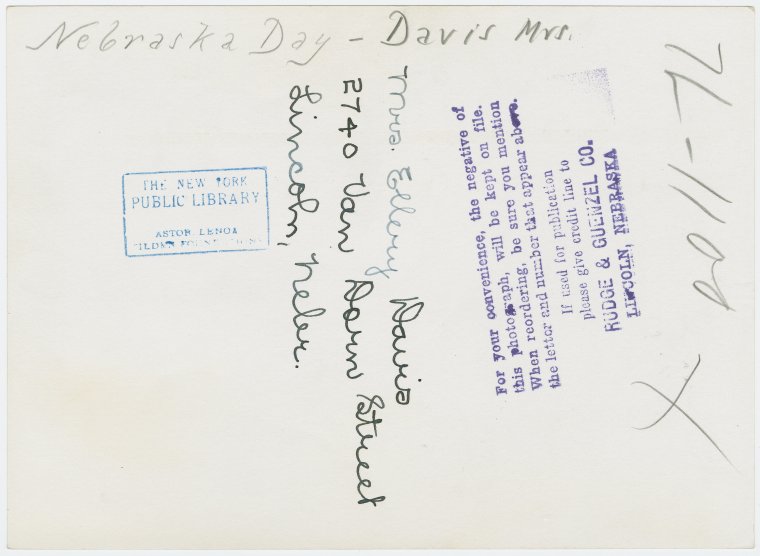 Nebraska Day - Davis Mrs.
Mrs. Ellery Davis
2740 Van Dorn Street
Lincoln, Nebr.
THE NEW YORK
PUBLIC LIBRARY
ASTOR, LENOX
TILDEN FOUNDATIONS
For your convenience, the negative of
this photograph, will be kept on file.
When reordering, be sure you mention
the letter and number that appear above.
If used for publication
please give credit line to
RUDGE & GUENZEL CO.
LINCOLN, NEBRASKA
X